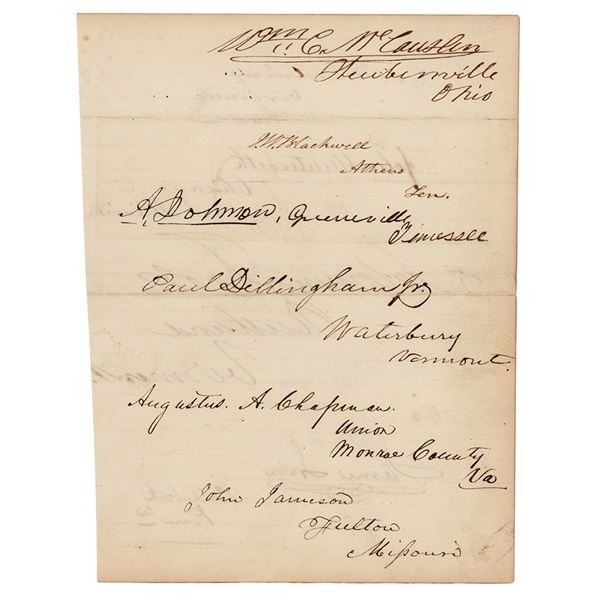 Wm. C. McCauslen
Steubenville
Ohio
J. W. Blackwell
Athens
Ten.
A. Johnson, Greeneville
Tennessee
Paul Dillingham Jr.
Waterbury
Vermont.
Augustus. A. Chapman.
Union
Monroe County
Va
John Jameson
Fulton
Missouri